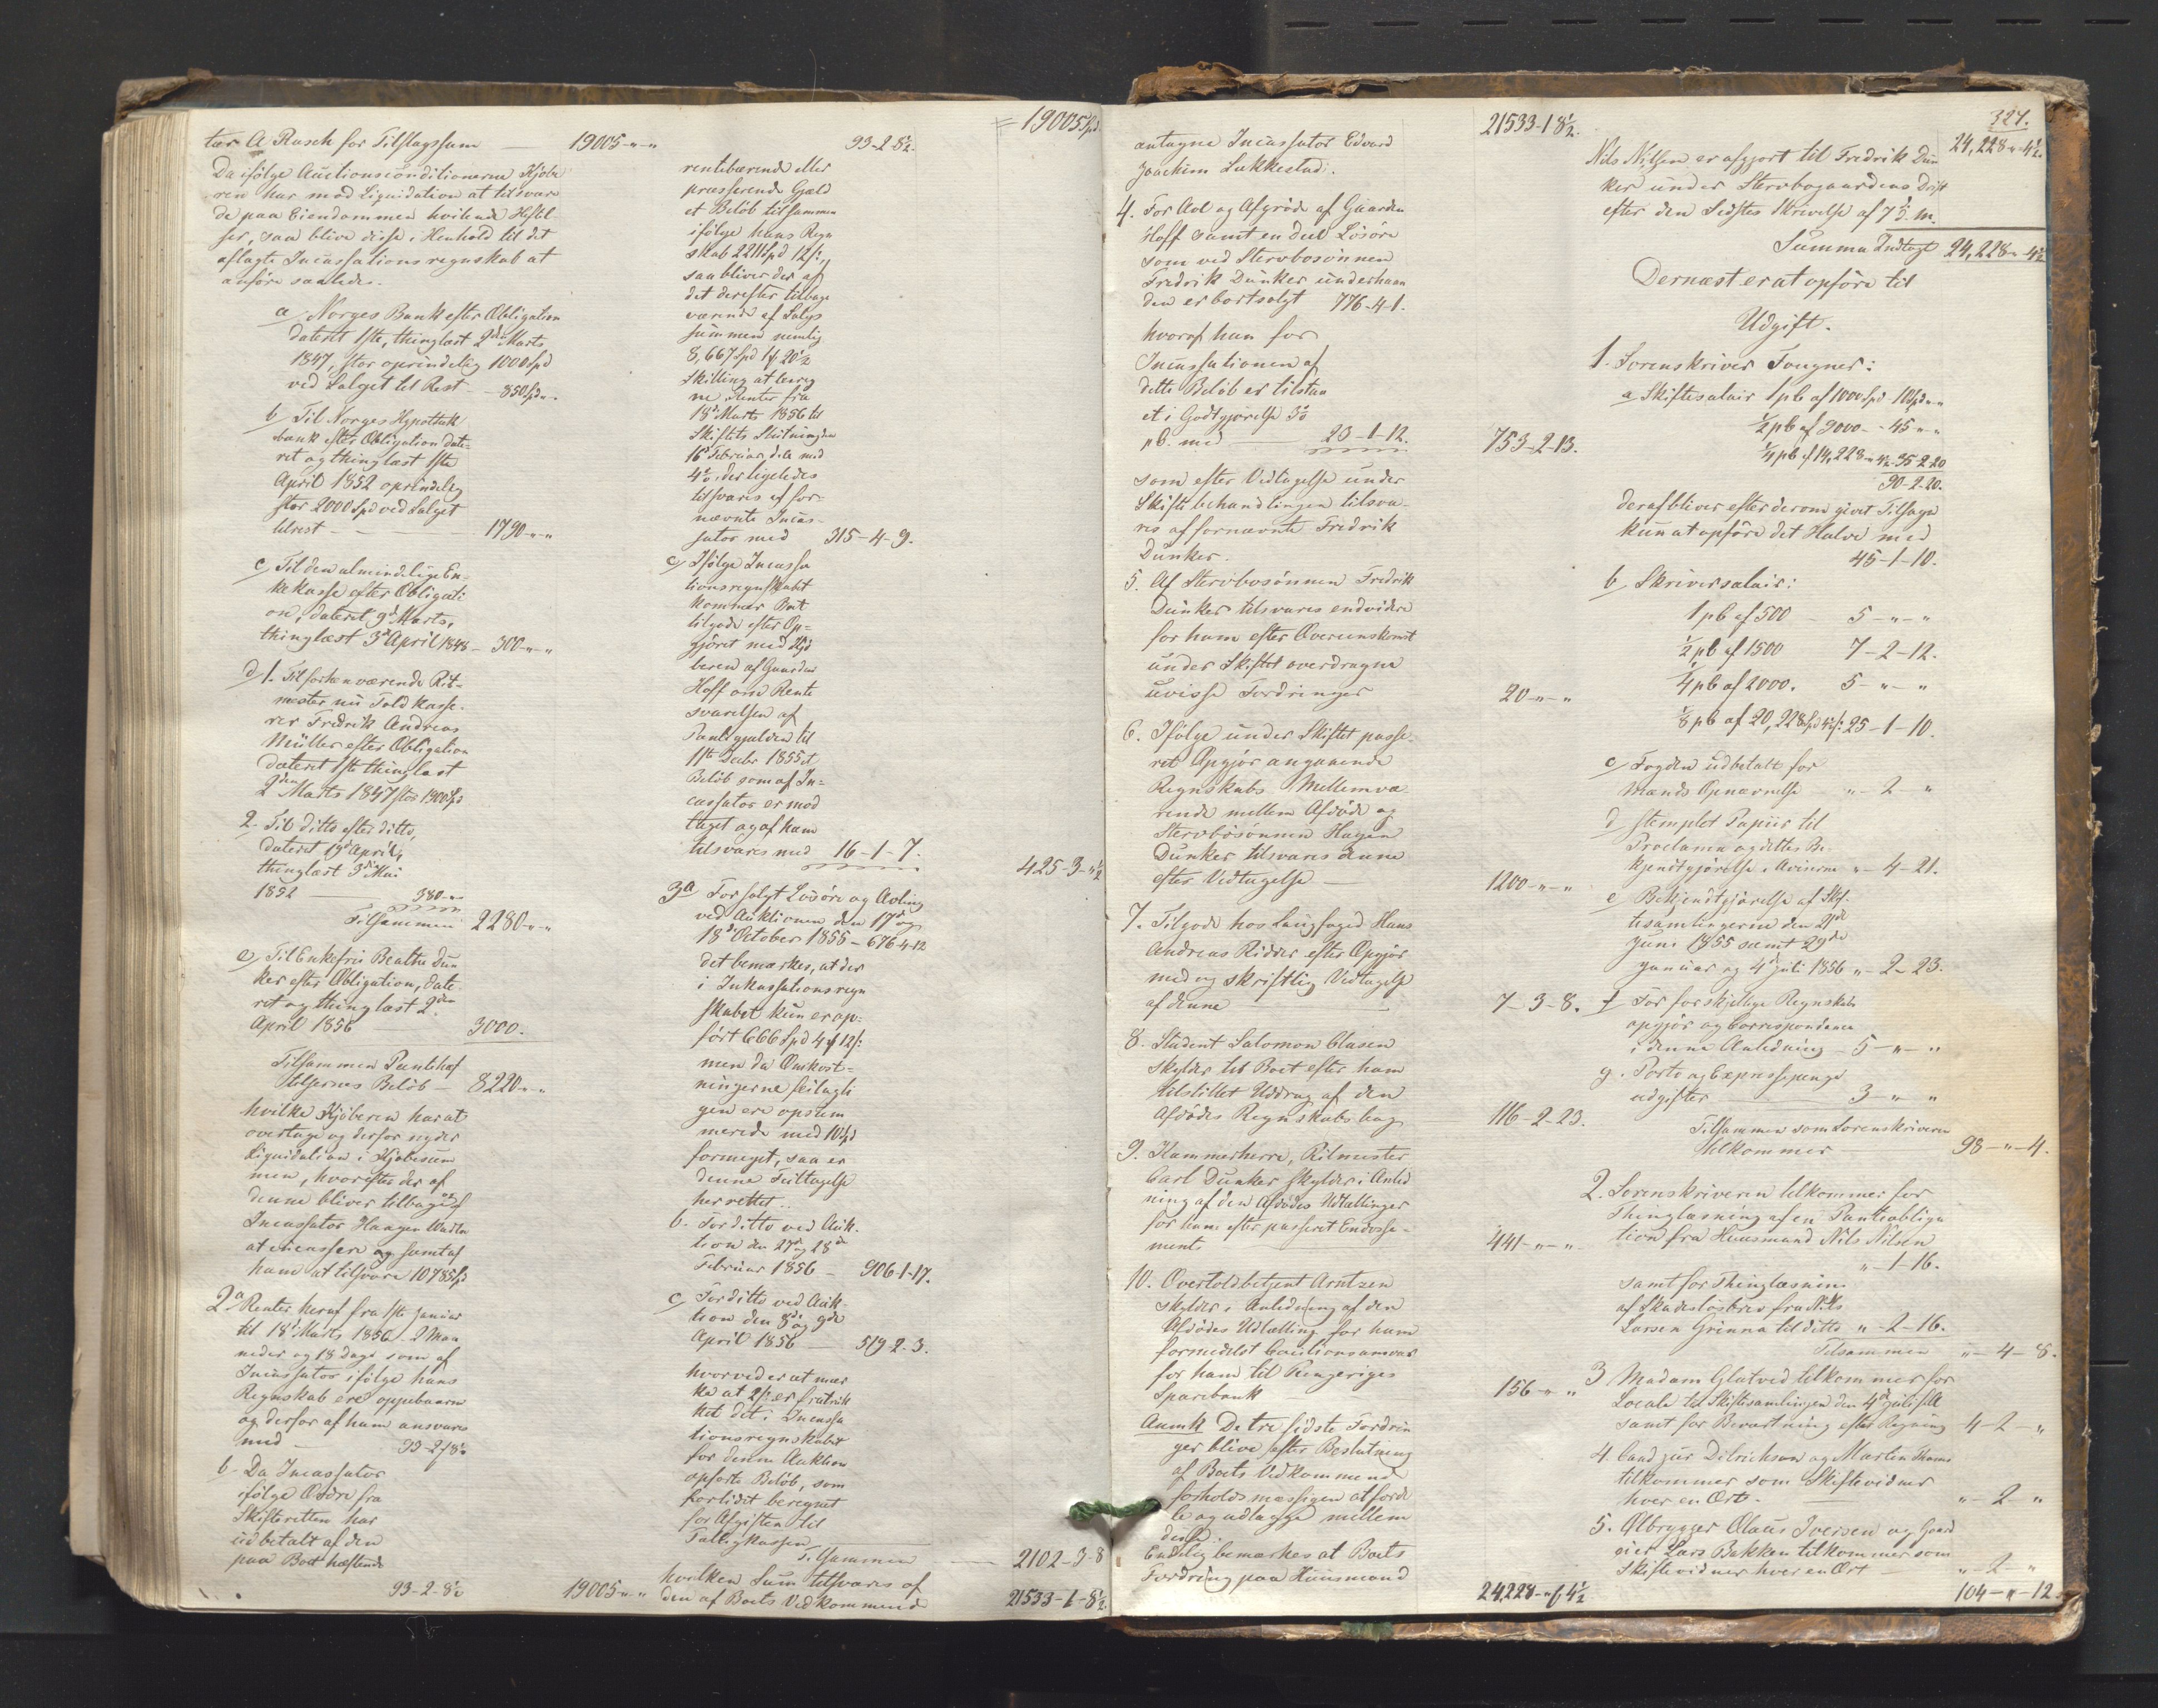 tær A Rasch for Tilslagssum — 19005-"-"
Da ifölge Auctionsconditionerne Kjøbe
ren har mod Liquidation at tilsvar
de paa Eiendommen hvilende Heftel
ser, saa blive disse i Henhold til det
aflagte Incassationsregnskab at
anføre saaledes.
a/ Norges Bank efter Obligation
dateret 1ste, thinglæst 2den Marts
1847, stor oprindelig 1000 Spd
ved Salget til Rest — 850 Spd "-
b/ Til Norges Hypothek
bank efter Obligation date-
ret og thinglæst 1ste
April 1852 oprindelig
stor 2000 Spd ved Salget
tilrest — 1790-"-"
c/ Til den almindelige En-
kekasse efter Obligati
on, dateret 9d Marts,
thinglæst 3d April 1848 — 300-"-"
d/ 1. Til forhenværende Rit-
mester nu Toldkasse-
rer Fredrik Andreas
Müller efter Obligation
dateret 1ste thinglæst
2den Marts 1847 stor 1900 Spd
2. Til ditto efter ditto,
dateret 19d April,
thinglæst 3d Mai
1852 — 380-"-
Tilsammen 2280-"-"
e/ Til Enkefru Beathe Dun
ker efter Obligation, date-
ret og thinglæst 2den
April 1856 3000.
Tilsammen Pantehef
telsernes Beløb — 8220-"-"
hvilke Kjøberen har at
overtage og derfor nyder
Liquidation i Kjøbesum
men, hvorefter der af
denne bliver tilbage at
Incassator Haagen
at incassere og samt af
ham at tilsvare 10785 Spd
2 a Renter heraf fra 1ste Januar
til 18d Marts 1856 2 Maa
neder og 18 Dage som af
Incassator ifölge hans
Regnskab ere oppebaarne
og derfor af ham ansvares
med — 93-2-8½
b. Da Incassator
ifölge Ordre fra
Skifteretten har
udbetalt af den
paa Boet hæftende
93-2-8½ 19005-"-"
93-2-8½. = 19005 Spd
rentebærende eller
presserende Gjæld
et Beløb tilsammen
ifölge hans Regn
skab 2211 Spd 12 s,
saa bliver der af
det derefter tilbage
værende af Salgs
summen nemlig
8,667 Spd 1 ₰ 20½
Skilling at bereg
ne Renter fra
18d Marts 1856 til
Skiftets Slutning den
16d Februar d.A. med
4%, der ligeledes
tilsvares af for-
nævnte Incas-
sator med 315-4-9.
c/ Ifölge Incassa
tionsregnskabet
kommer Boet
tilgode efter Op-
gjöret med Kjø
beren af Gaarden
Hoff om Rente
svarelsen af
Pantegjælden til
1ste Decbr 1855 et
Beløb som af In-
cassator er mod
taget og af ham
tilsvares med 16-1-7.
425-3-"½
3 a For solgt Løsøre og Avling
ved Auktionen den 17d og
18d October 1855 — 676-4-12
det bemærkes, at der
i Inkassationsregn
skabet kun er op-
ført 666 Spd 4 ₰ 12 s:
men da Omkost-
ningerne feilagti
gen ere opsum
merede med 10 Spd
formeget, saa er
denne Feiltagelse
her rettet.
b. For ditto ved Auk-
tion den 27d og 28de
Februar 1856 — 906-1-17.
c/ For ditto ved Auk-
tion den 8d og 9de
April 1856 — 519-2-3.
hvorved er at mær
ke at 2 s er fratruk
ket det i Incassa
tionsregnskabet
for denne Auktion
opførte Beløb, som
forlidet beregnet
for Afgiften til
Fattigkassen
Tilsammen — 2102-3-8
hvilken Sum tilsvares af
den af Boets Vedkommende 21533-1-8½
antagne Incassator Edvard 21533-1 8½.
Joachim Lukkestad.
4. For Avl og Afgrøde af Gaarden
Hoff samt en deel Løsøre
som ved Stervbosönnen
Fredrik Dunker underhaan
den er bortsolgt 776-4-1.
hvoraf han for
Incassationen af
dette Beløb er tilstaa
et i Godtgjørelse 3
pC. med — 23-1-12. 753-2-13.
som efter Vedtagelse under
Skiftebehandlingen tilsva-
res af fornævnte Fredrik
Dunker.
5. Af Stervbosönnen Fredrik
Dunker tilsvares endvidere
for ham efter Overeenskomst
under Skiftet overdragne
uvisse Fordringer 20-"-"
6. Ifölge under Skiftet passe-
ret Opgjør angaaende
Regnskabs Mellemvæ-
rende mellem Afdøde og
Stervbosönnen Hagen
Dunker tilsvares denne
efter Vedtagelse — 1200-"-"
7. Tilgode hos Laugfoged Hans
Andreas Ridder efter Opgjør
med og skriftlig Vedtagelse
af denne — 7-3-8.
8. Student Salomon Clasen
skylder til Boet efter ham
tilstillet Uddrag af den
Afdødes Regnskabsbog 116-2-23.
9. Kammerherre, Ritmester
Carl Dunker skylder i Anled
ning af den Afdødes Udtællinger
for ham efter passeret Endosse-
ments — 441-"-"
10. Overtoldbetjent Arntzen
skylder i Anledning af den
Afdødes Udtælling for ham
formedelst Cautionsansvar
for ham til Ringeriges
Sparebank 156-"-"
Anmk De tre sidste Fordrin
ger blive efter Beslutning
af Boets Vedkommende
forholdsmæssigen at forde
le og udlægge mellem
disse.
Endelig bemærkes at Boets
Fordring paa Huusmand 24,228-"-4½
327.
Nils Nilsen er afgjort til Fredrik Dun 24,228-"-4½
ker under Stervbogaardens Drift
efter den Sidstes Skrivelse af 7d d. M.
Summa Indtægt 24,228-"-4½
Dernæst er at opføre til
Udgift.
1. Sorenskriver Fougner:
a Skiftesalair 1 pC af 1000 Spd 10 Spd "-"
½ pC af 9000 - - 45 "-"
¼ pC af 14,228-"-4½ 35-2-20
90-2-20.
deraf bliver efter derom givet Tilsagn
kun at opføre det Halve med
45-1-10.
b/ Skriversalair:
1 pC af 500 5-"-"
½ pC af 1500 7-2-12.
¼ pC af 2000. 5-"-"
⅛ pC af 20,228 Spd 4½ s: 25-1-10.
c/ Fogden udbetalt for
Mænds Opnævnelse "-2-"
d/ stemplet Papiir til
Proclama og dettes Be-
kjendtgjørelse i Aviserne "-4-21.
e Bekjendtgjørelse af Skif-
tesamlingerne den 21de
Juni 1855 samt 29de
Januar og 4d Juli 1856 "-2-23.
f/ For forskjellige Regnskabs
opgjör og Correspondance
i denne Anledning — 5-"-"
g. Porto og Expressepenge
udgifter — 3-"-"
Tilsammen som Sorenskriveren
tilkommer — 98-"-4.
2. Sorenskriveren tilkommer for
Thinglæsning af en Panteobliga
tion fra Huusmand Nils Nilsen
"-1-16.
samt for Thinglæsning
af Skadesløsbrev fra Nils
Larsen Grinna til ditto "-2-16.
Tilsammen "-4-8.
3 Madam Glatved tilkommer for
Locale til Skiftesamlingen den 4de Juli
samt for Bevertning efter Regning 4-2-"
4. Cand jur Ditrichson og Martin
tilkommer som Skiftevidner
hver en Ort. — "-2-"
5. Ølbrygger Olaus Iversen og Gaard
eier Lars Bakken tilkommer som
Skiftevidner hver en Ort — "-2-"
104-"-12.